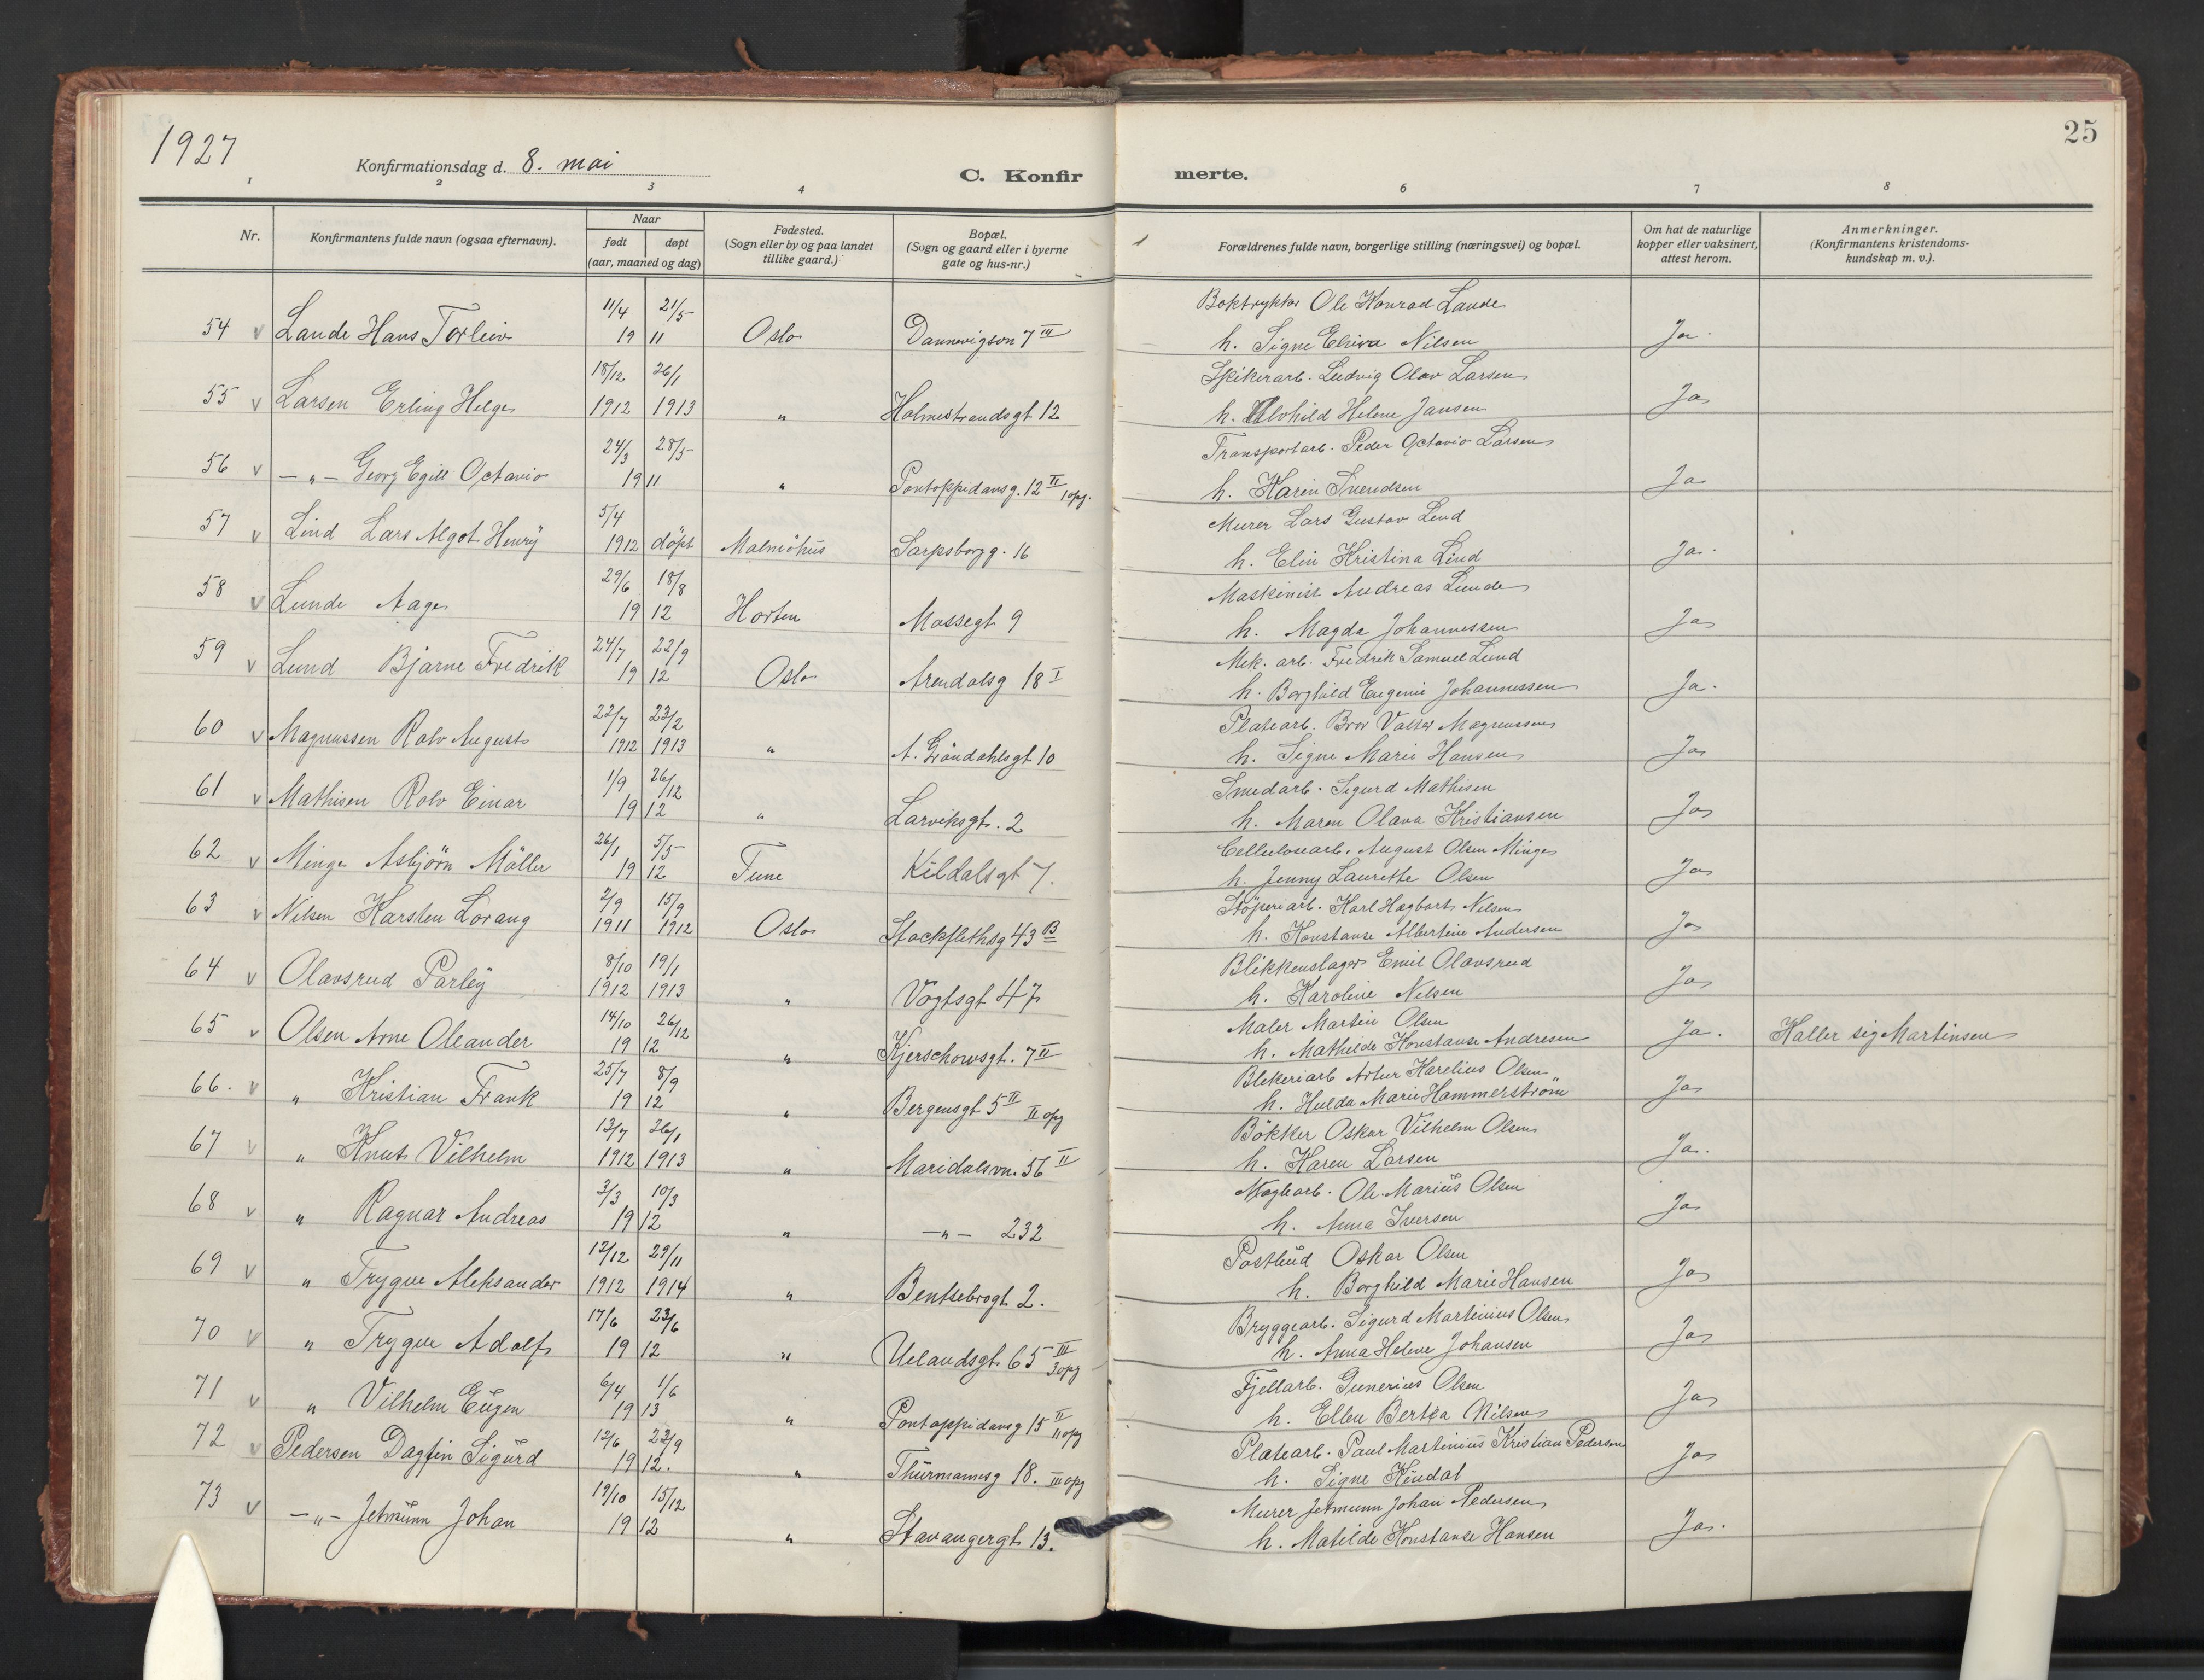 1927
25
Konfirmationsdag d. 8. mai
C. Konfirmerte.
1 2 3 4 6 7 8
Nr. | Konfirmantens fulde navn (ogsaa efternavn). | Naar født | døpt (aar, maaned og dag) | Fødested. (Sogn eller by og paa landet tillike gaard.) | Bopæl. (Sogn og gaard eller i byerne gate og hus-nr.) | Forældrenes fulde navn, borgerlige stilling (næringsvei) og bopæl. | Om hat de naturlige kopper eller vaksinert, attest herom. | Anmerkninger. (Konfirmantens kristendoms-kundskap m. v.).
54 v Lande Hans Torleiv 11/4 21/5 19 11 Oslo Dannevigsvn 7 III Boktrykker Ole Konrad Lande
h. Signe Nilsen Ja.
55 v Larsen Erling Helge 18/12 1912 26/1 1913 " Holmestrandsgt 12 Spikerarb. Ludvig Olav Larsen
h. Alvhild Helene Jansen Ja
56 v —"— Georg Egill Octavio 24/3 28/5 19 11 " Pontoppidansg. 12 II 1 opg. Transportarb. Peder Octavio Larsen
h. Karin Svendsen Ja
57 v Lind Lars Algot Henrÿ 5/4 1912 döpt Malmöhus Sarpsborgg. 16 Murer Lars Gustav Lind
h. Elin Kristina Lind Ja.
58 v Lunde Aage 29/6 18/8 19 12 Horten Mossegt 9 Maskinist Andreas Lunde
h. Magda Johannessen Ja
59 v Lund Bjarne Fredrik 24/7 22/9 19 12 Oslo Arendalsg 18 I Mek. arb. Fredrik Samuel Lund
h. Borghild Eugenie Johannessen Ja.
60 v Magnussen Rolv August 22/7 1912 23/2 1913 " A. Gröndahlsgt 10 Platearb. Bror Valter Magnussen
h. Signe Marie Hansen Ja
61 v Mathisen Rolv Einar 1/9 26/12 19 12 " Larviksgt. 2 Smedarb. Sigurd Mathisen
h. Maren Olava Kristiansen Ja
62 v Minge Asbjörn Möller 26/1 5/5 19 12 Tune Kildalsgt 7. Cellulosearb. August Olsen Minge
h. Jenny Laurette Olsen Ja
63 v Nilsen Karsten Lorang 2/9 1911 15/9 1912 Oslo Stockflethsg 43 B Stöperiarb. Karl Hagbart Nilsen
h. Konstanse Albertine Andersen Ja
64 v Olavsrud Parleÿ 8/10 1912 19/1 1913 " Vogtsgt 47 Blikkenslager Emil Olavsrud
h. Karoline Nilsen Ja
65 v Olsen Arne Oleander 14/10 26/12 19 12 " Kjerschowsgt. 7 II Maler Martin Olsen
h. Mathilde Konstanse Andresen Ja. Kaller sig Martinsen
66. v " Kristian Frank 25/7 8/9 19 12 " Bergensgt 5 II II opg Blekeriarb Artur Karelius Olsen
h. Hulda Marie Hammerström Ja
67 v " Knut Vilhelm 13/7 1912 26/1 1913 " Maridalsvn. 56 II Bökker Oskar Vilhelm Olsen
h. Karen Larsen Ja.
68 v " Ragnar Andreas 3/3 10/3 19 12 " —"— 232 Ole Marius Olsen
h. Anna Iversen Ja
69 v " Trygve Aleksander 12/12 1912 29/11 1914 " Bentsebrogt 2. Postbud Oskar Olsen
h. Borghild Marie Hansen Ja
70 v " Trygve Adolf 17/6 23/6 19 12 " Uelandsgt 65 III 3 opg Bryggearb. Sigurd Martinius Olsen
h. Anna Helene Johansen Ja
71 v " Vilhelm Eugen 6/4 1/6 19 13 " Pontoppidansg 15 II II opg Fjellarb. Gunerius Olsen
h. Ellen Bertea Nilsen Ja
72 v Pedersen Dagfin Sigurd 12/6 22/9 19 12. " Thurmannsg 18. III opg Platearb. Paul Martinius Kristian Pedersen
h. Signe Kindal Ja
73 v —"— Jetmunn Johan 19/10 15/12 19 12 " Stavangergt 13. Murer Jetmunn Johan Pedersen
h. Matilde Konstanse Hansen Ja.